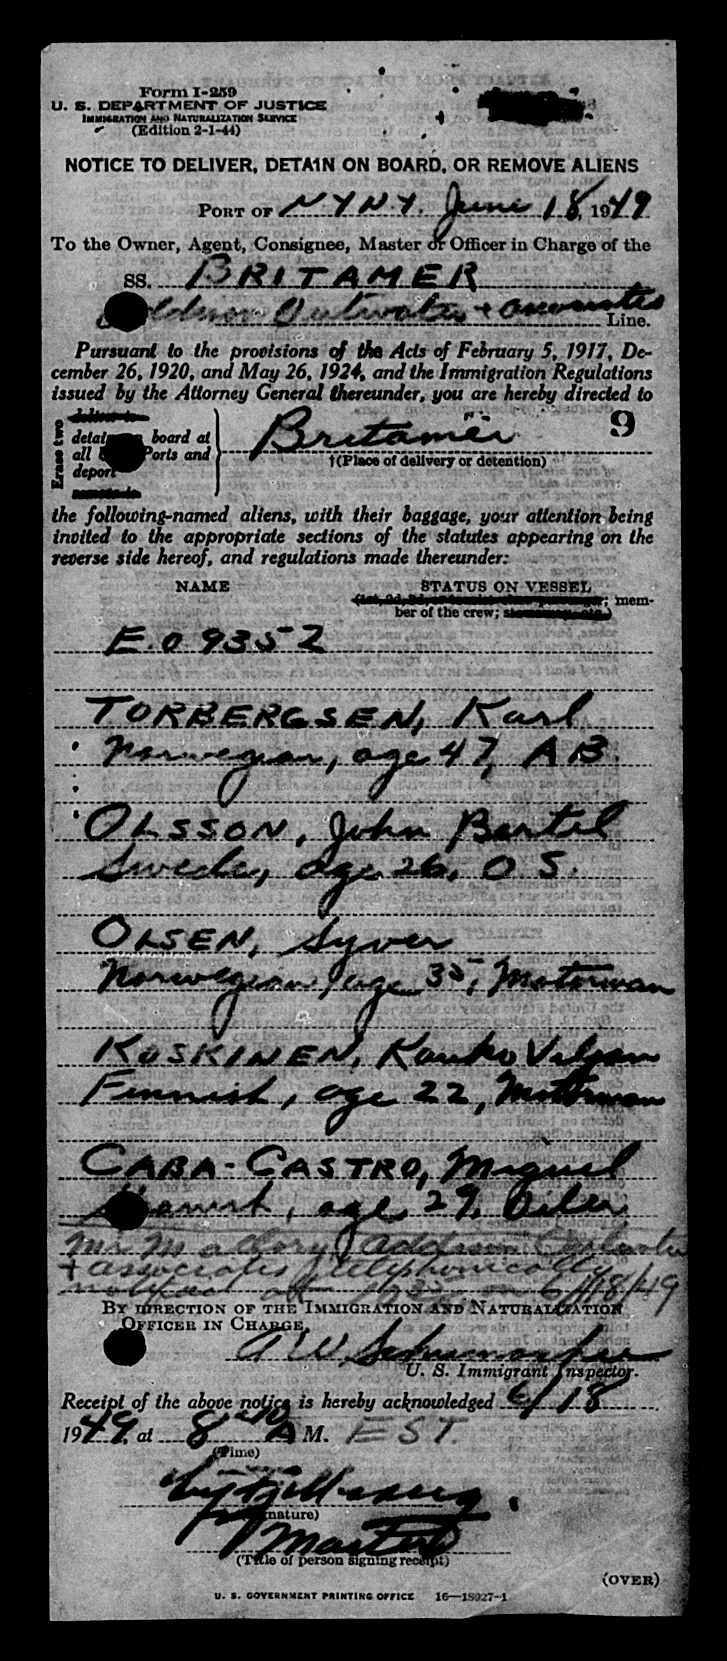 Form I-259
U. S. DEPARTMENT OF JUSTICE
IMMIGRATION AND NATURALIZATION SERVICE
(Edition 2-1-44)
NOTICE TO DELIVER, DETAIN ON BOARD, OR REMOVE ALIENS
PORT OF N.Y.N.Y. June 18, 1949
To the Owner, Agent, Consignee, Master or Officer in Charge of the
SS. BRITAMER
Outwater + associates Line.
Pursuant to the provisions of the Acts of February 5, 1917, De-
cember 26, 1920, and May 26, 1924, and the Immigration Regulations
issued by the Attorney General thereunder, you are hereby directed to
Erase two
detain on board at
all Ports and
deport
Britamer 9
†(Place of delivery or detention)
the following-named aliens, with their baggage, your attention being
invited to the appropriate sections of the statutes appearing on the
reverse side hereof, and regulations made thereunder:
NAME STATUS ON VESSEL
mem-
ber of the crew;
E.O 9352
TORBERGSEN, Karl
Norwegian, age 47, AB.
OLSSON, John Bertel
Swede, age 26, O S.
OLSEN, Syver
Norwegian, age 35, Motorman
KOSKINEN, Kauko Veljam
Finnish, age 22, Motorman
CABA-CASTRO, Miguel
Spanish, age 29, Oiler
Mr. Mallory, Addison Outwater
+ associates telephonically
notified at 6/18/49
BY DIRECTION OF THE IMMIGRATION AND NATURALIZATION
OFFICER IN CHARGE,
A W Schumacher
U. S. Immigrant Inspector.
Receipt of the above notice is hereby acknowledged 6/18
1949, at 8 AM. EST.
(Time)
(Signature)
Master
(Title of person signing receipt)
(OVER)
U. S. GOVERNMENT PRINTING OFFICE 16—18027-1